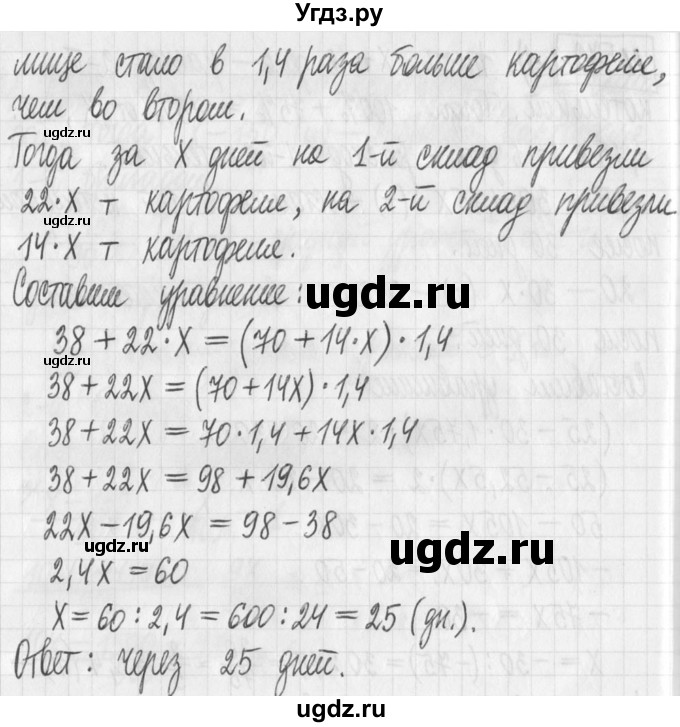 Угдз.ру
лище стало в 1,4 раза больше картофеля,
чем во втором.
ugdz.ru
Тогда за X дней на 1-й склад привезли
ugdz.ru
22·X т картофеля, на 2-й склад привезли
14·X т картофеля.
ugdz.ru
Составим уравнение:
ugdz.ru
38+22·X=(70+14·X)·1,4
ugdz.ru
38+22X=(70+14X)·1,4
38+22X=70·1,4+14X·1,4
38+22X=98+19,6X
22X-19,6X=98-38
ugdz.ru
ugdz.ru
2,4X=60
X=60:2,4=600:24=25 (дн.).
Ответ: через 25 дней.
ugdz.ru
ugdz.ru